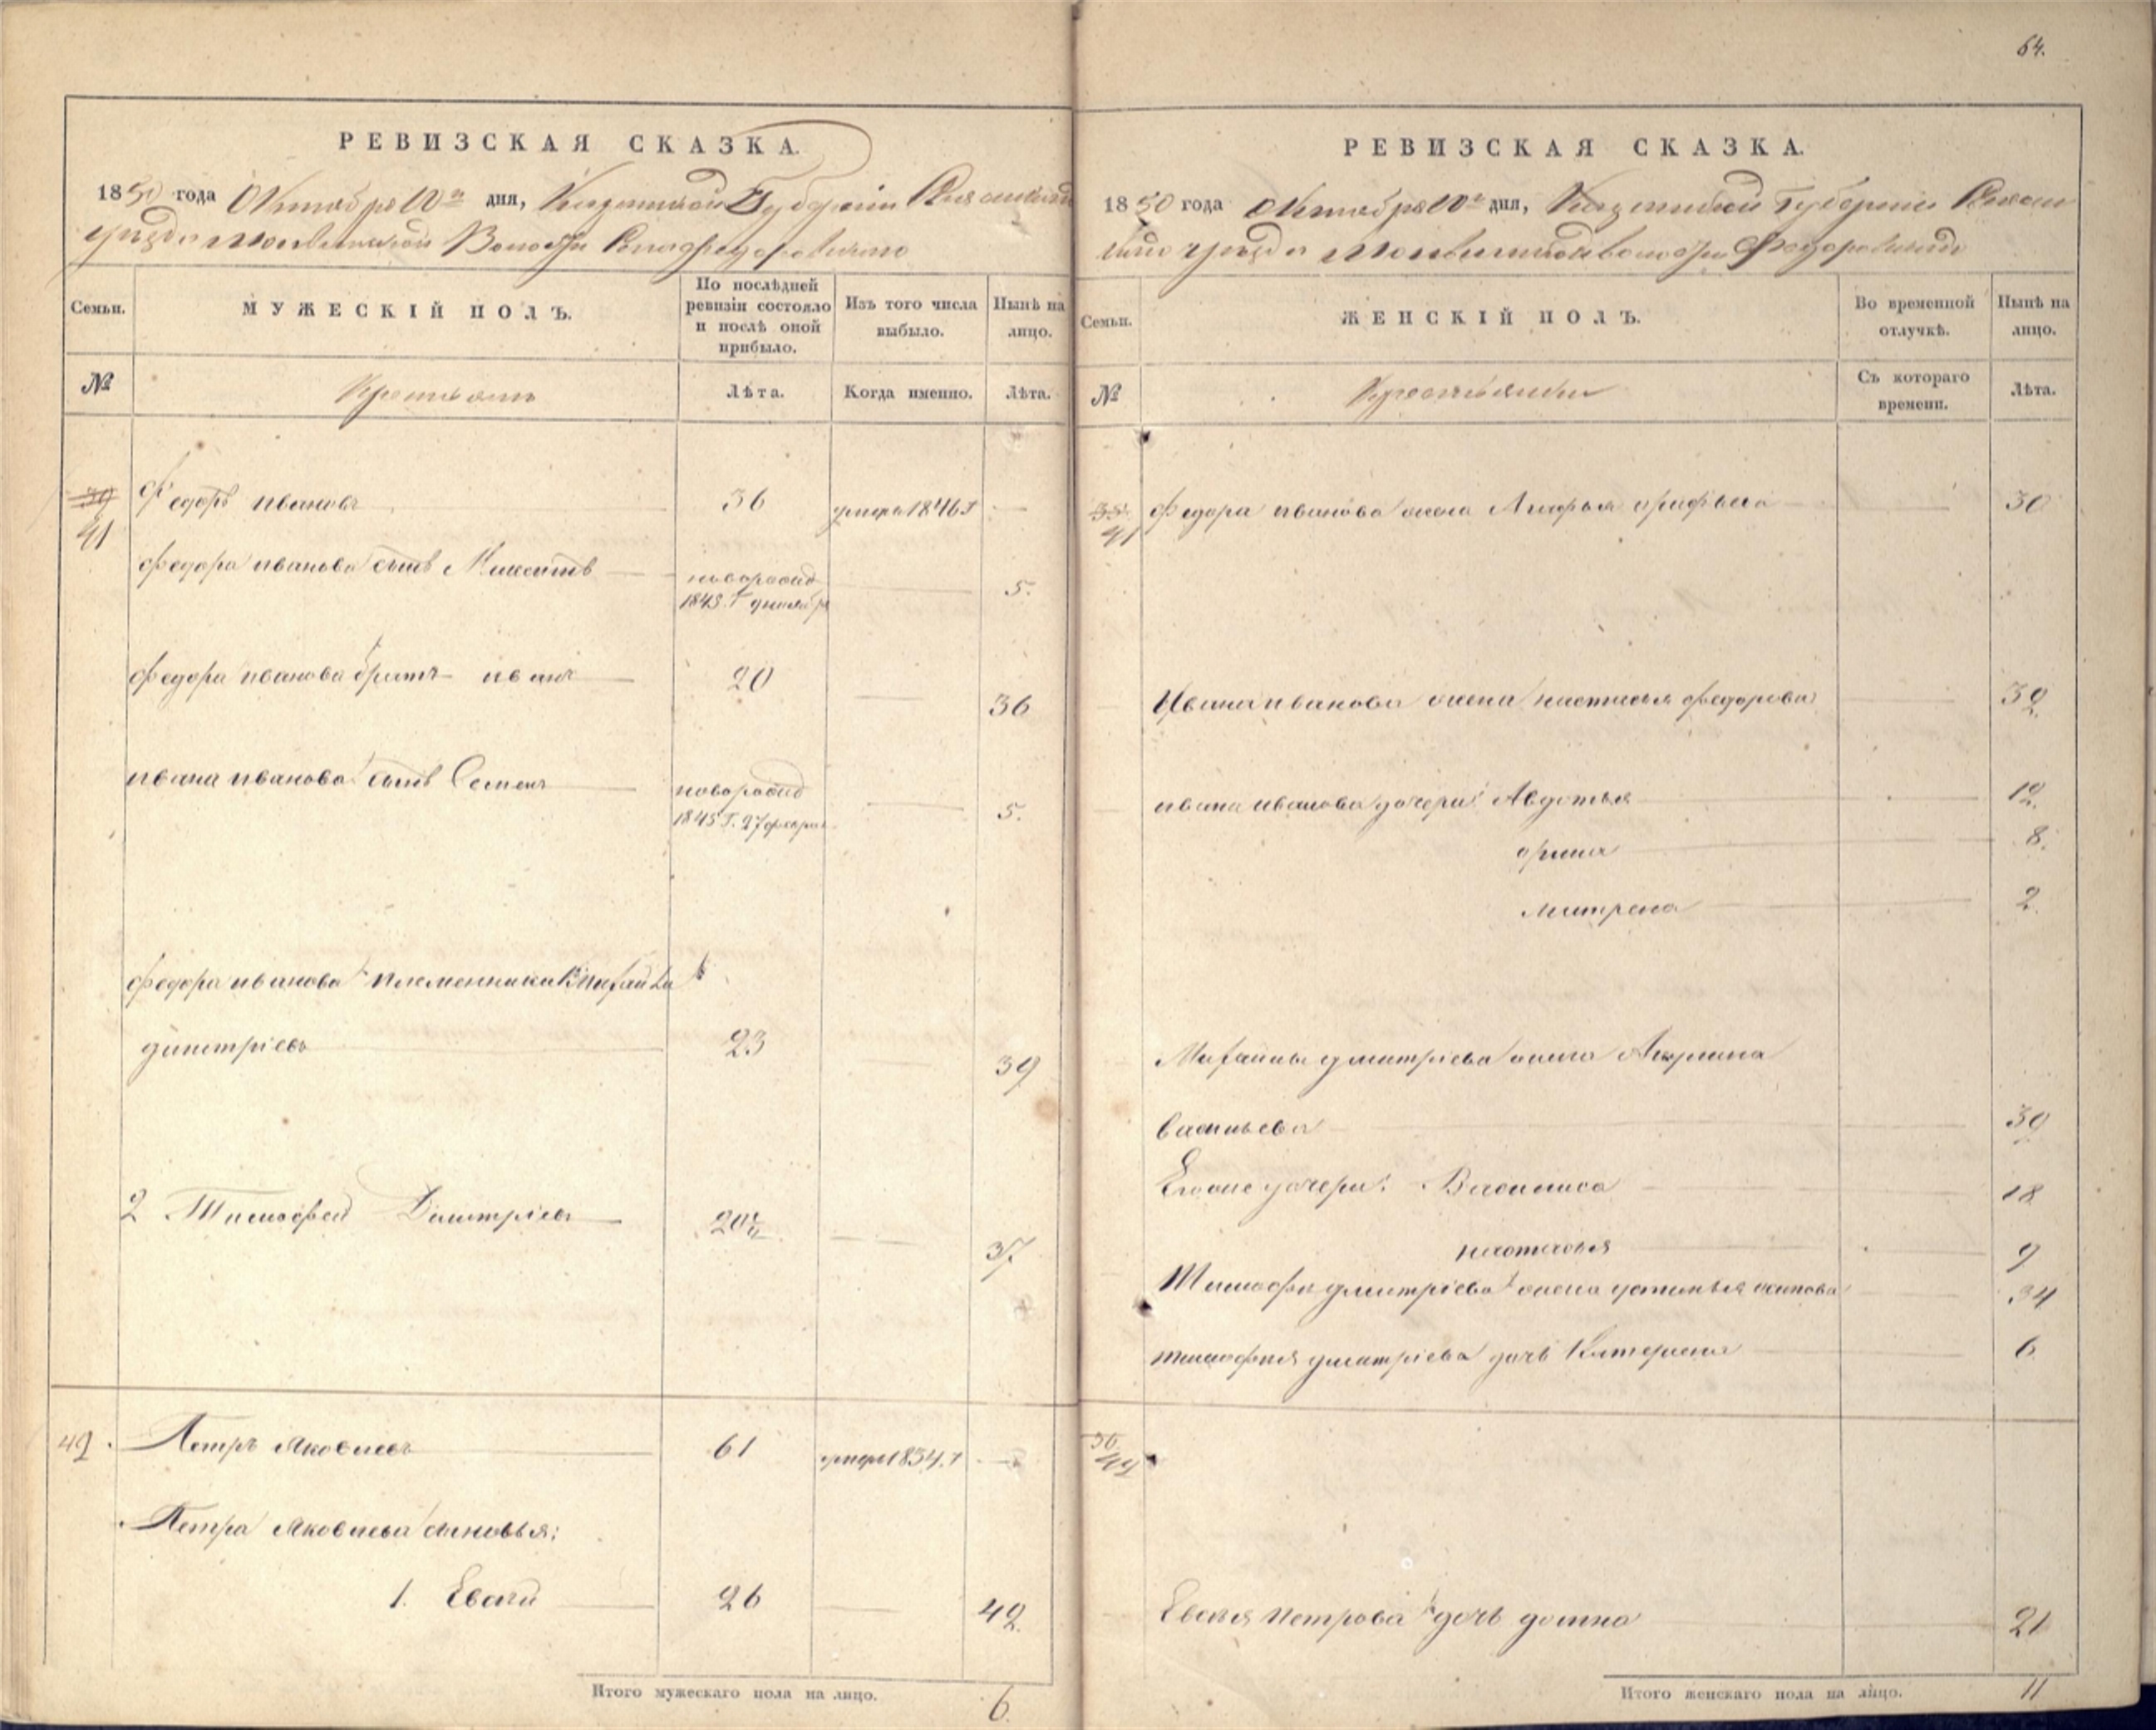 64.
РЕВИЗСКАЯ СКАЗКА.
1850 года Октября 10го дня, Казанской Губерніи
уѣзда Волости
Семьи.
МУЖЕСКІЙ ПОЛЪ.
По послѣдней ревизіи состояло и послѣ оной прибыло.
Изъ того числа выбыло.
Нынѣ на лицо.
№
Крестьяне
Лѣта.
Когда именно.
Лѣта.
39
41
Федоръ ивановъ 36 умеръ 1846 г
федора иванова сынъ новорожд 5.
1845. г
федора иванова братъ иванъ 20 36
ивана иванова сынъ Семенъ новорожд 5.
1845 г. 27 феврал
федора иванова племянники 1й михайла
димтріевъ 23 39
2 Тимофей Димитріевъ 20½ 37
42. Петръ Яковлевъ 61 умеръ 1834. г
Петра Яковлева сыновья:
1. Евсей 26 42.
Итого мужескаго пола на лицо. 6.
РЕВИЗСКАЯ СКАЗКА.
1850 года Октября 10го дня, Казанской Губерніи
уѣзда волости
Семьи.
ЖЕНСКІЙ ПОЛЪ.
Во временной отлучкѣ.
Нынѣ на лицо.
№
Крестьянки
Съ котораго времени.
Лѣта.
41
Федора иванова жена 30
Ивана иванова жена настасья федорова 32
ивана иванова дочери: Авдотья 12.
орина 8.
матрена 2.
Михайлы дмитріева жена Акулина
васильева 39
Его же дочери: Василиса 18
настасья 9
Тимофея дмитріева жена устинья осипова 34
тимофея дмитріева дочь Катерина 6
36
42
Евсея петрова дочь домна 21
Итого женскаго пола на лицо. 11